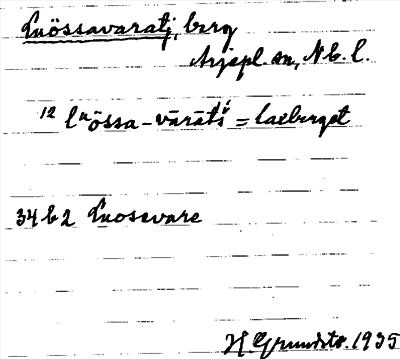 Luössavaratj, berg
Arjepl. sn, Nb. l.
12 luössa-vārātś = laxberget
34 b 2 Luosavare
H Grundstr. 1935